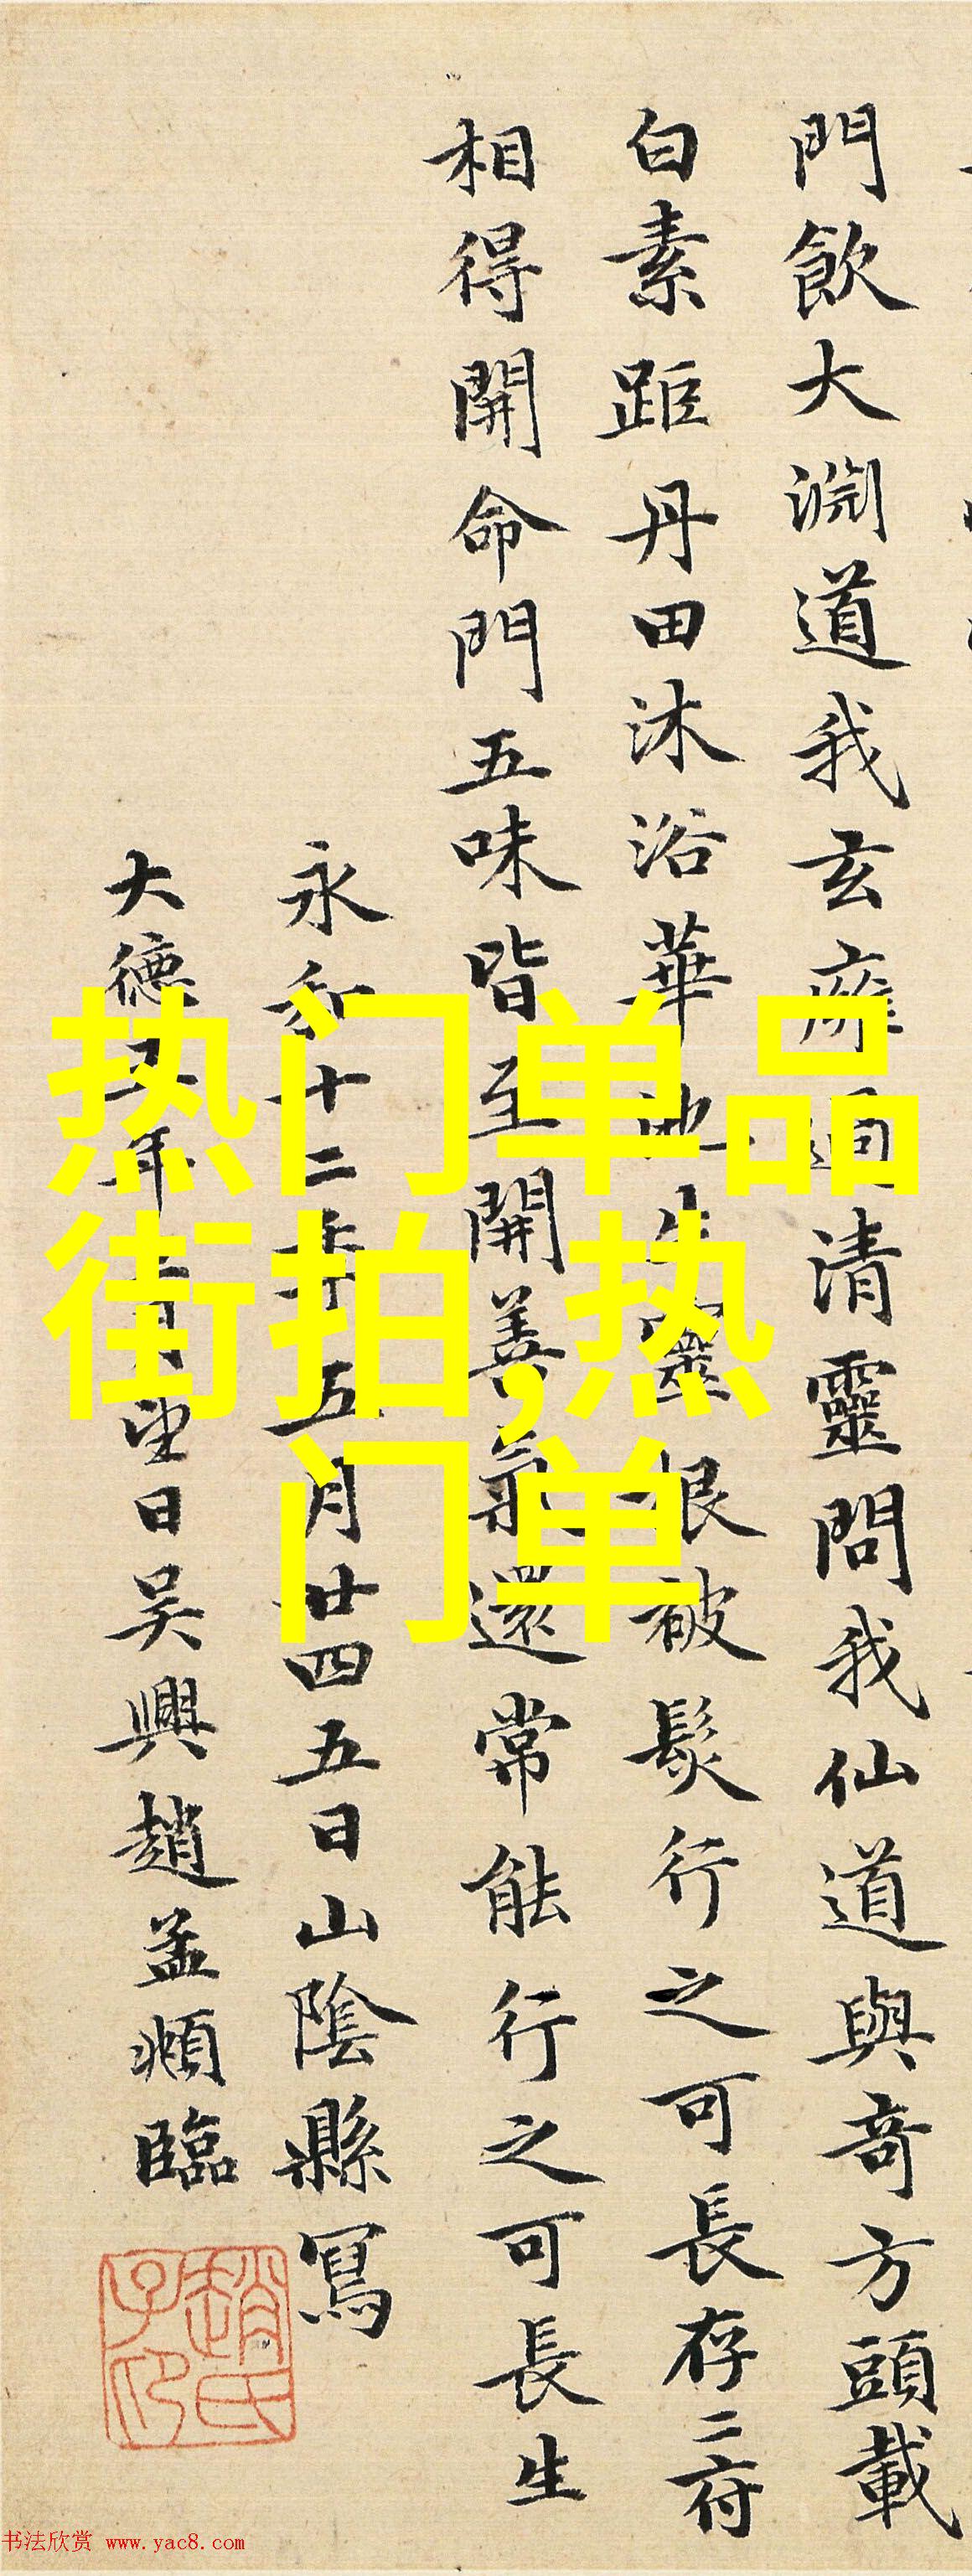 門飲大淵道我玄廱過清靈問我仙道與奇方頭載
白素距丹田沐浴華池生靈根被髮行之可長存二府
相得開命門五味皆至開善氣還常能行之可長生
永和十二年五月廿四五日山陰縣寫
大德五年 望日吴興趙孟頫臨
趙氏子昂
热门单品
街拍,热
门单
书法欣赏 www.yac8.com